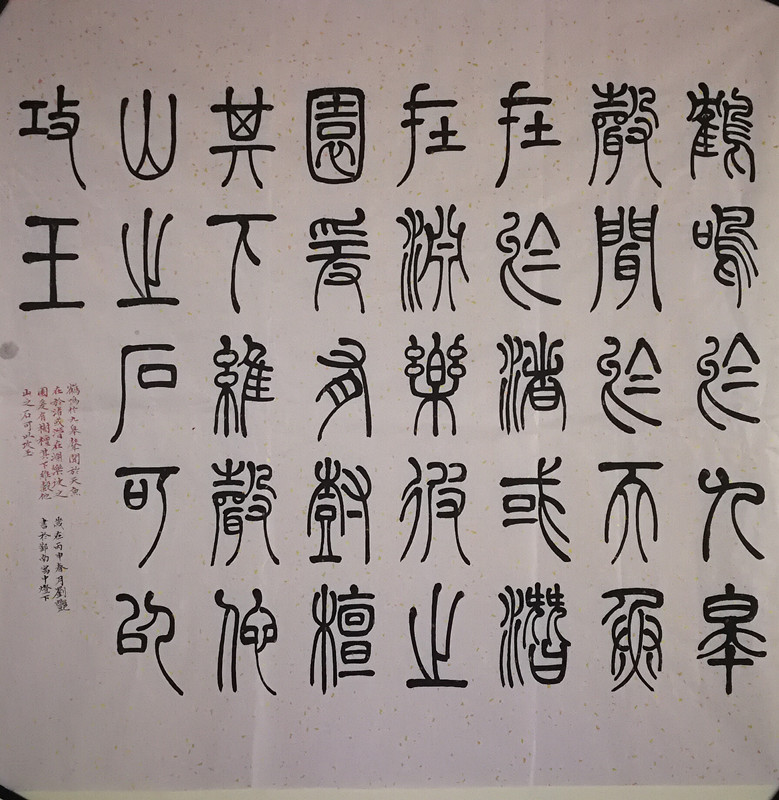 鶴鳴於九皋
聲聞於天魚
在於渚或潛
在淵樂彼之
園爰有樹檀
其下維穀他
山之石可以
攻玉
鶴鳴於九皋聲聞於天魚
在於渚或潛在淵樂彼之
園爰有樹檀其下維穀他
山之石可以攻玉
歲在丙申春月劉艷
書於鄧南窩中燈下